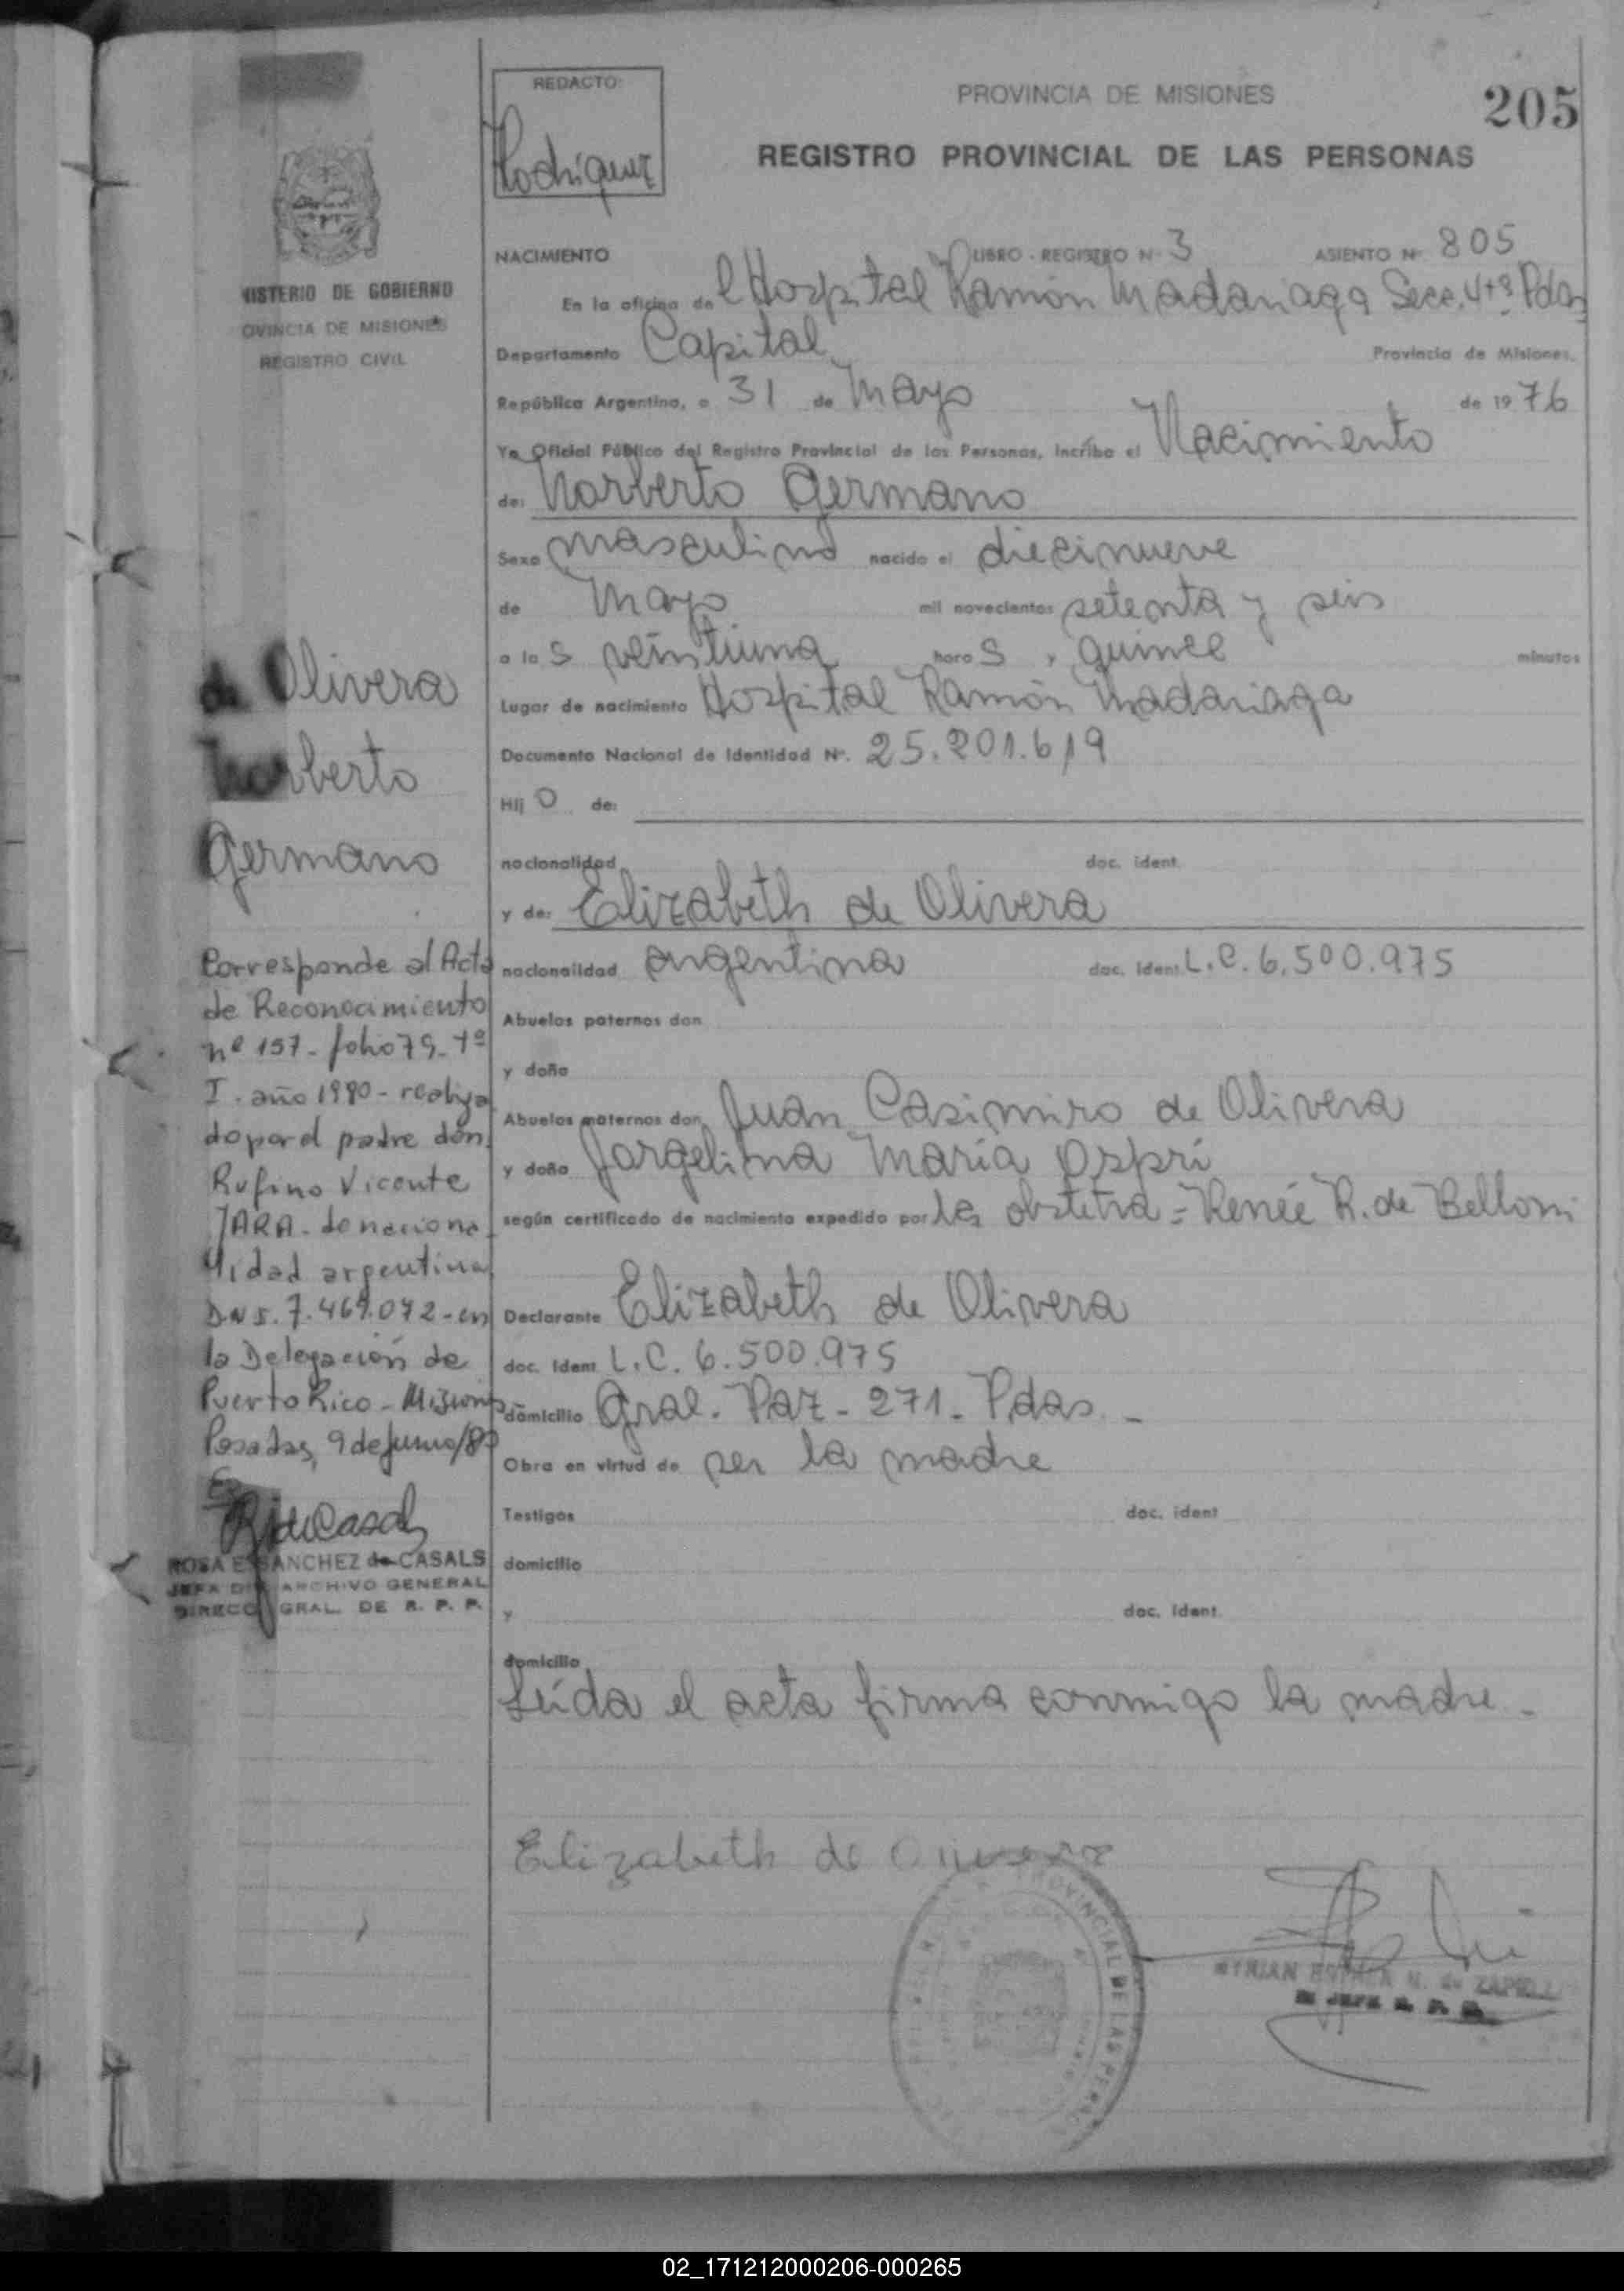 REDACTO:
Rodriguez
PROVINCIA DE MISIONES
205
REGISTRO PROVINCIAL DE LAS PERSONAS
NISTERIO DE GOBIERNO
OVINCIA DE MISIONES
REGISTRO CIVIL
NACIMIENTO LIBRO - REGISTRO Nº 3 ASIENTO Nº 805
En la oficina del Hospital Ramón Madariaga Secc. 4ta. Pdas
Departamento Capital Provincia de Misiones.
República Argentina, a 31 de Mayo de 1976
Yo Oficial Público del Registro Provincial de las Personas, incribo el Nacimiento
de: Norberto Germano
Sexo masculino nacido el diecinueve
de Mayo mil novecientos setenta y seis
a las veintiuna horas, quince minutos
Lugar de nacimiento Hospital Ramón Madariaga
Documento Nacional de Identidad Nº. 25.201.619
Hijo de:
nacionalidad doc. ident.
y de: Elizabeth de Olivera
nacionalidad argentina doc. ident. L.C. 6.500.975
Abuelos paternos don
y doña
Abuelos maternos don Juan Casimiro de Olivera
y doña Jorgelina María Ospri
según certificado de nacimiento expedido por la obstetra = Renée R. de Belloni
Declarante Elizabeth de Olivera
doc. ident. L.C. 6.500.975
domicilio Gral. Paz - 271 - Pdas. -
Obra en virtud de ser la madre
Testigos doc. ident
domicilio
y doc. ident.
domicilio
Leída el acta firma conmigo la madre -
Elizabeth de Olivera
PROVINCIAL DE LAS PERS
de Olivera
Norberto
Germano
Corresponde al Acta
de Reconocimiento
nº 157 - folio 79 - tº
I - año 1980 - realiza
do por el padre don
Rufino Vicente
JARA - de naciona
lidad argentina
DNI. 7.469.072 - en
la Delegación de
Puerto Rico - Misiones
Posadas, 9 de Junio/80
ROSA E. SANCHEZ de CASALS
JEFA DIV ARCHIVO GENERAL
DIRECC GRAL. DE R. P. P.
02_171212000206-000265